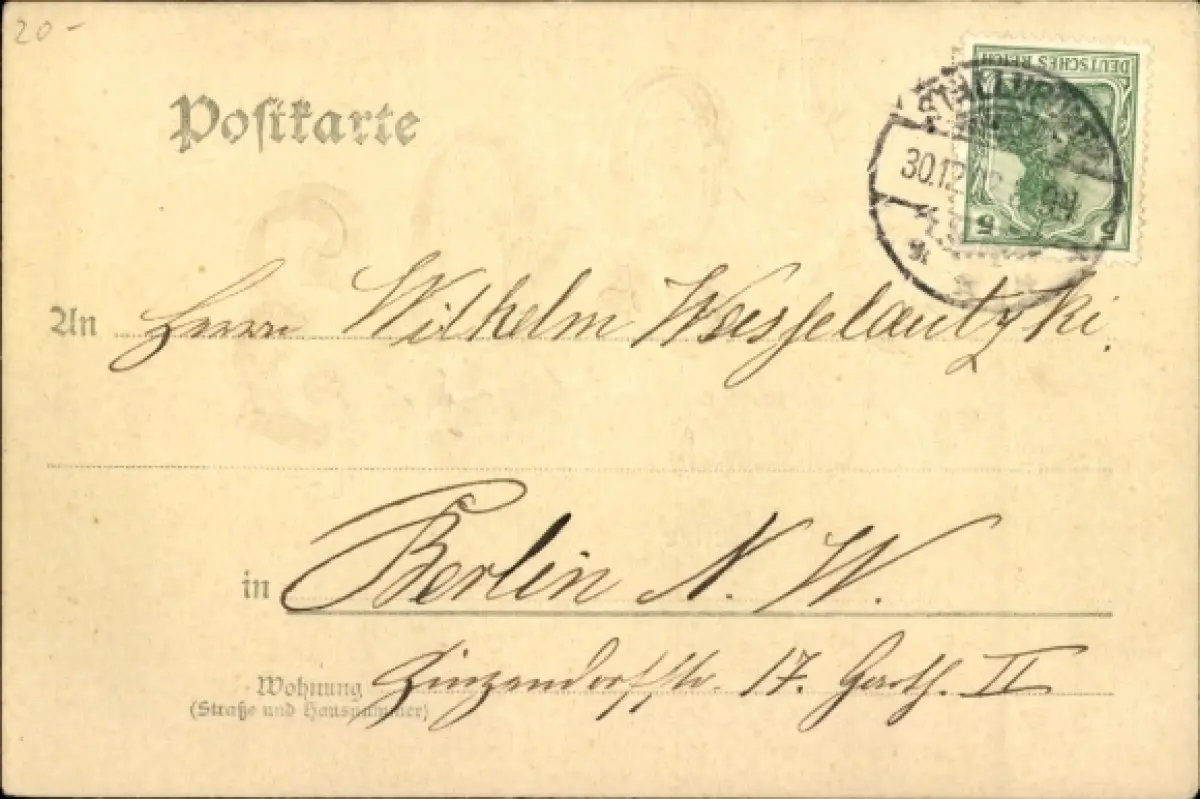 20-
Postkarte
DEUTSCHES REICH
5 5
30.12.
An Herrn Wilhelm
in Berlin N. W.
Wohnung Zinzendorfstr. 17. Garth. II
(Straße und Hausnummer)